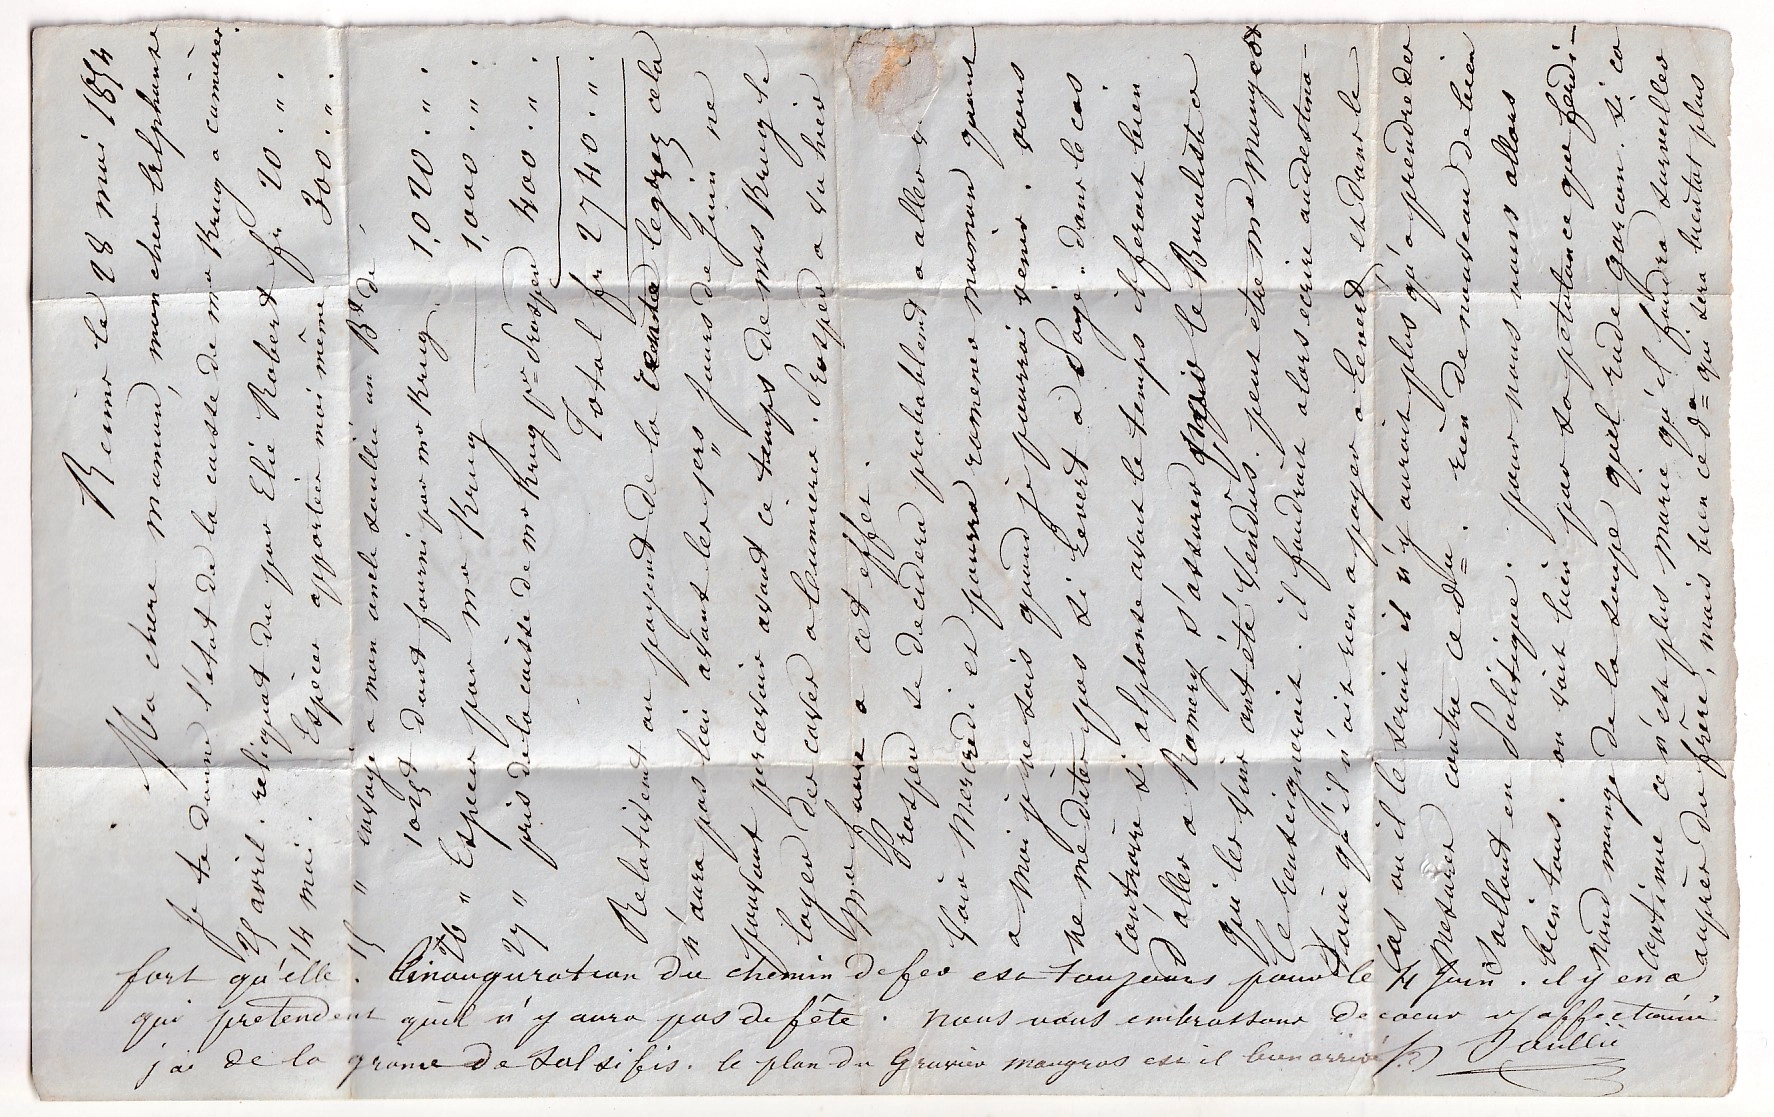 Reims le 28 mai 1854
Ma chere maman, mon cher alphonse
Je te donne l'etat de la caisse de mr Krug a cumières
25 avril. reliquat du par Elié Robert fr 20 . " .
14 mai. Espèces apportées moi même 300 . " .
15 " envoyé a mon oncle Soullié un Bt de
1025 dont fourni par mr Krug 1,020 . " .
26 " Espèces par mr Krug 1,000 . " .
27 " pris de la caisse de mr Krug pr Prosper 400 . " .
Total fr 2740 . " .
Relativemt au payemt de la rente legras cela
n'aura pas lieu avant les 1ers jours de Juin ne
pouvant percevoir avant ce temps de mrs Krug le
loyer des caves a Cumières. Prosper a vu hier
mr a cet effet.
Prosper se decidera probablemt a aller
voir mercredi et pourra ramener maman quant
a moi je ne sais quand je pourrai venir. vous
ne me dites pas si Levert a payé. dans le cas
contraire si alphonse avait le temps il ferait bien
d'aller a Romery s'assurer chez le Buraliste
qui les vins ont été vendus. peut etre mr mungest
le renseignerait. il faudrait alors ecrire au destina-
taire qu'il n'ait rien a payer a Levert et dans le
cas ou il le serait il n'y aurait plus qu'a prendre des
mesures contre ce du =. rien de nouveau de bien
saillant en Politique. pour nous nous allons
bien tous. on voit bien par sa petulance que ferdi-
nand mange de la soupe quel rude garcon. si ca
continue ce n'est plus marie qu'il faudra surveiller
auprès du frère, mais bien ce dr = qui sera bientot plus
fort qu'elle. L'inauguration du chemin de fer est toujours pour le 4 Juin. il y en a
qui pretendent qu'il n'y aura pas de fête. nous vous embrassons de coeur et affectionné
j'ai de la graine de salsifis. le plan du Gravier maugras est il bien arrivé (?) Soullié